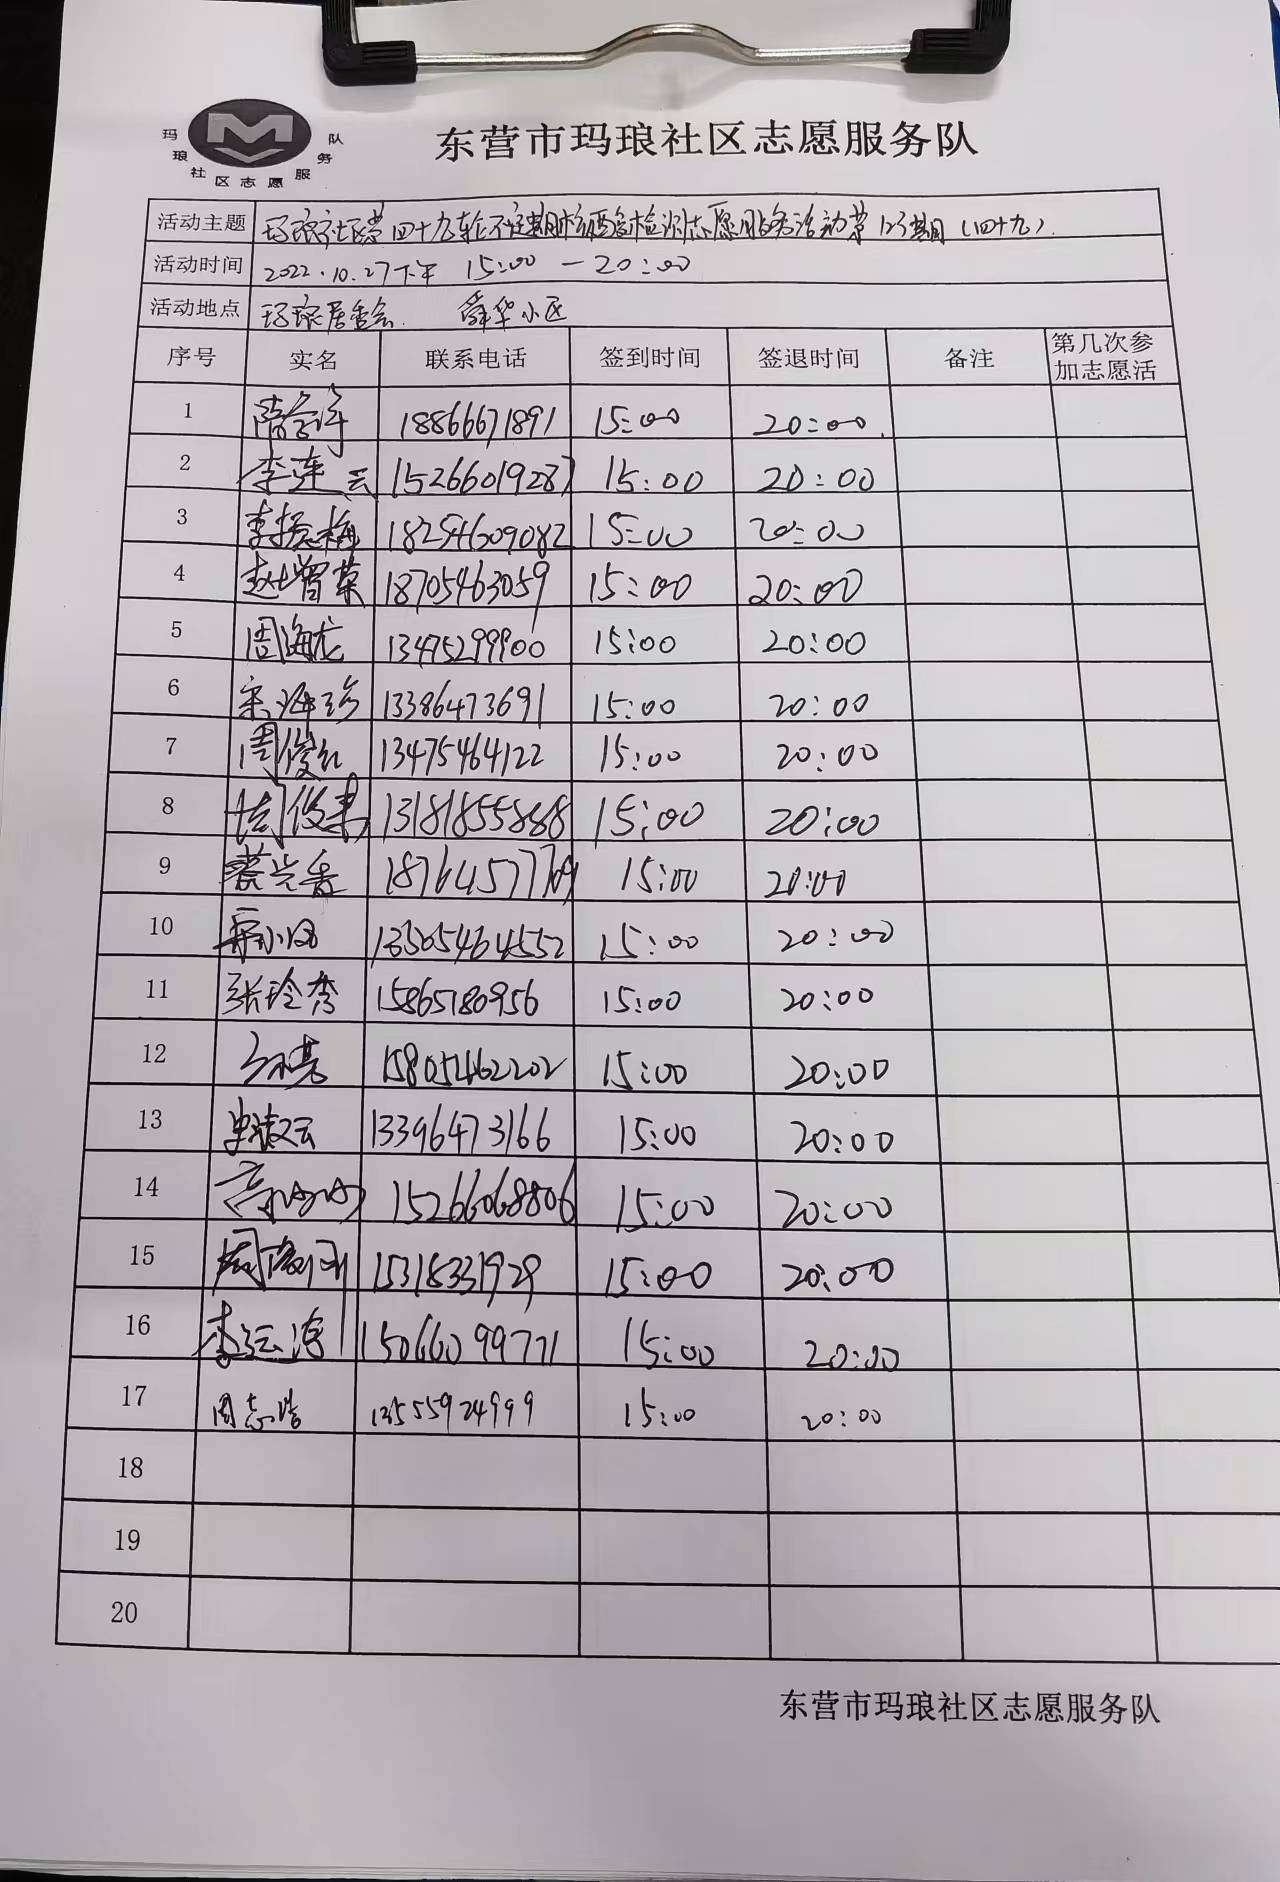 玛琅社区志愿服务队
东营市玛琅社区志愿服务队
活动主题 玛琅社区第四十九轮不定期核酸检测志愿服务活动第123期(四十九)
活动时间 2022.10.27下午 15:00—20:00
活动地点 玛琅居委会 舜华小区
序号 实名 联系电话 签到时间 签退时间 备注 第几次参
加志愿活
1 18866671891 15:00 20:00
2 李莲云 15266019287 15:00 20:00
3 李振梅 18254609082 15:00 20:00
4 赵增荣 18705463059 15:00 20:00
5 周海龙 13475299900 15:00 20:00
6 宋海珍 13386473691 15:00 20:00
7 周俊红 13475464122 15:00 20:00
8 13181855888 15:00 20:00
9 18764577769 15:00 20:00
10 13505464552 15:00 20:00
11 张玲秀 15865180956 15:00 20:00
12 15805462202 15:00 20:00
13 史淑云 13396473166 15:00 20:00
14 15266068806 15:00 20:00
15 15318331929 15:00 20:00
16 15066099771 15:00 20:00
17 周志浩 13555924999 15:00 20:00
18
19
20
东营市玛琅社区志愿服务队